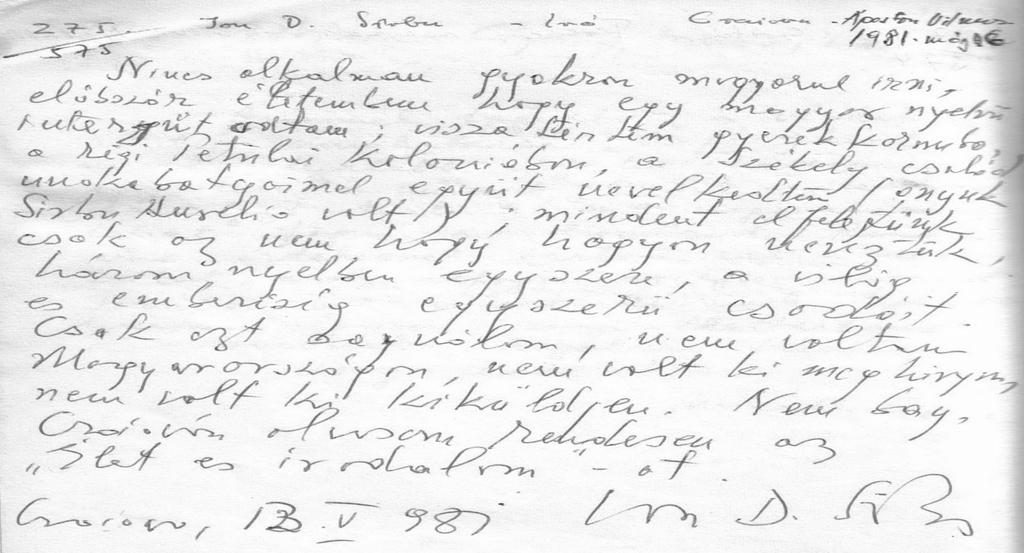 275. Ion D. Sîrbu - író Craiova - Vilmos
575 1981. máj 16
Nincs alkalmam gyakran magyarul irni,
először életemben hogy egy magyar nyelvü
adtam; vissza tértem gyerek koromba,
a régi Petrilai koloniában, a Székely család
unokabátyaimel együt nevelkedtem (anyuk
Sirbu Aurelia volt); mindent elfelejtünk
csak az nem hogy hogyan neveztük,
három nyelben egyszere, a világ
es emberiség egyszerü csodáit.
Csak azt sajnálom, nem voltam
Magyarországon, nem volt ki meghivjon,
nem volt ki kiküldjen. Nem baj,
Craiován olvasom rendesen az
„Élet es irodalom"-ot.
Craiova, 13 V 981 Ion D. Sîrbu